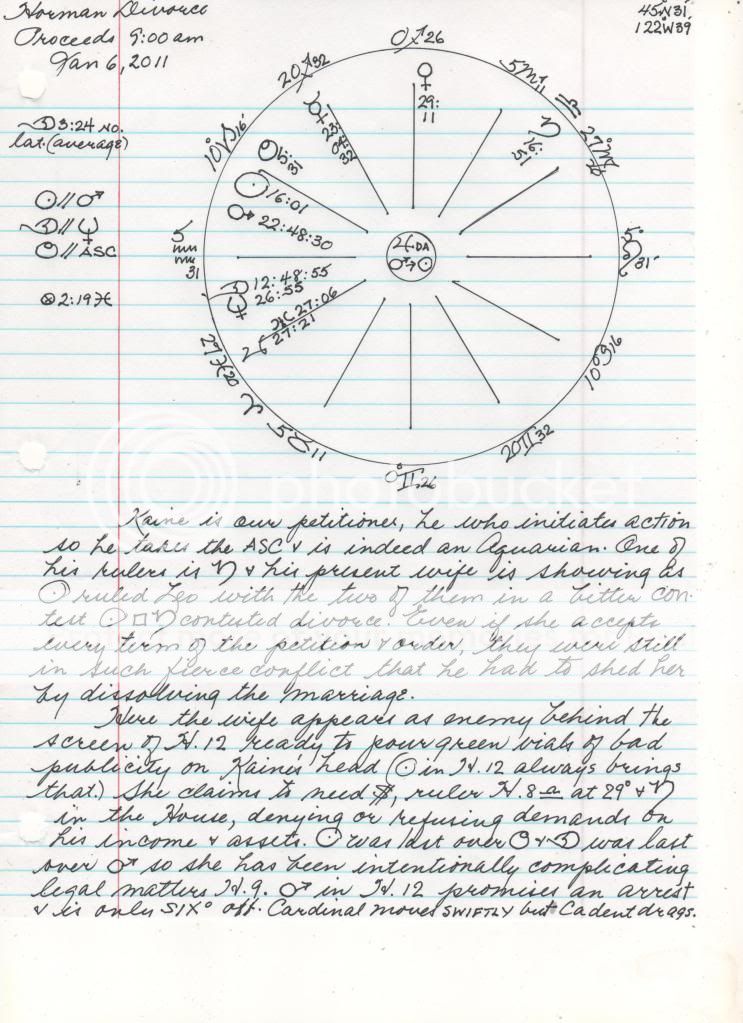 Horman Divorce
Proceeds 9:00 am
Jan 6, 2011
45N31'
122W39'
☽3:24 no.
lat. (average)
☉//♂
☽//♆
//ASC
⊗2:19♓
0♐26
5♏11
♎
27♍20
5°♌31'
10♋16
20♊32
0°♊26
5♉11
♈
27♓20
5♒31
10°♑16'
20♐32
♀
29:
11
♄16:
51
☉16:01
♂22:48:30
☽12:48:55
♆26:55
♃27:21
27:06
♃-DA
♂→☉
photobucket
Kaine is our petitioner, he who initiates action
so he takes the ASC & is indeed an Aquarian. One of
his rulers is ♄ & his present wife is showing as
☉ ruled Leo with the two of them in a bitter con-
test ☉□♄ contested divorce. Even if she accepts
every term of the petition & order, they were still
in such fierce conflict that he had to shed her
by dissolving the marriage.
Here the wife appears as enemy behind the
screen of H.12 ready to pour green vials of bad
publicity on Kaine's head (☉ in H.12 always brings
that.) She claims to need $, ruler H.8 ♎ at 29° & ♄
in the House, denying or refusing demands on
his income & assets. ☉ was last over & ☽ was last
over ♂ so she has been intentionally complicating
legal matters H.9. ♂ in H.12 promises an arrest
& is only SIX° off. Cardinal moves SWIFTLY but Cadent drags.